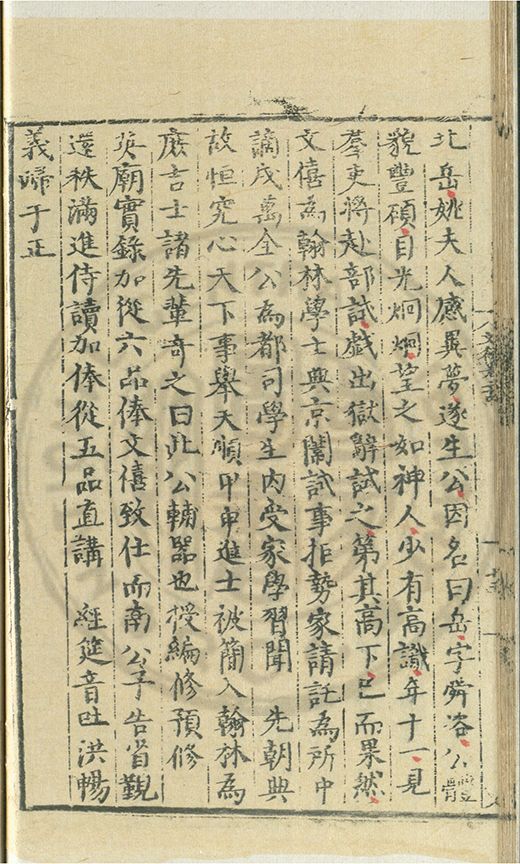 北岳姚夫人感異夢遂生公因名曰岳字舜咨公體
貌豐碩目光炯炯望之如神人少有高識年十一見
羣吏將赴部試戱出獄辭試之第其高下已而果然
文僖為翰林學士典京闈試事拒勢家請託為所中
謫戍萬全公為都司學生內受家學習聞　先朝典
故恒究心天下事舉天順甲申進士被簡入翰林為
庶吉士諸先輩奇之曰此公輔器也授編修預修
英廟實錄加從六品俸文僖致仕而南公予告省覲
還秩滿進侍讀加俸從五品直講　經筵音吐洪暢
義歸于正